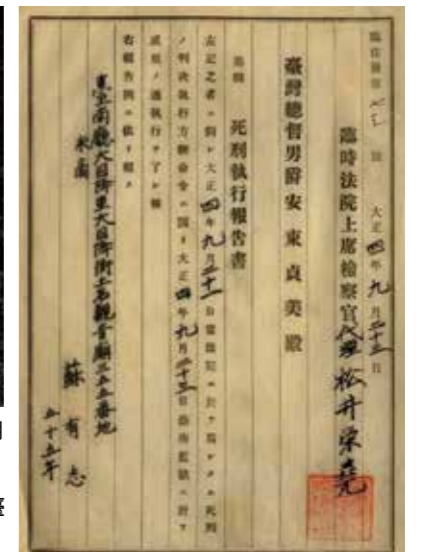 臨庶發第 號 大正四年九月二十三日
臨時法院上席檢察官代理松井栄堯
臺灣總督男爵安東貞美殿
死刑執行報告書
左記之者ニ對シ大正四年九月二十一日當法院ニ於テ為シタル死刑
ノ判決執行方御命令ニ因リ大正四年九月二十三日臺南監獄ニ於テ
成規ノ通執行ヲ了シ候
右報告
臺南廳大目降里大目降街土名觀音廟三五五番地
蘇有志
五十五年
明
臺